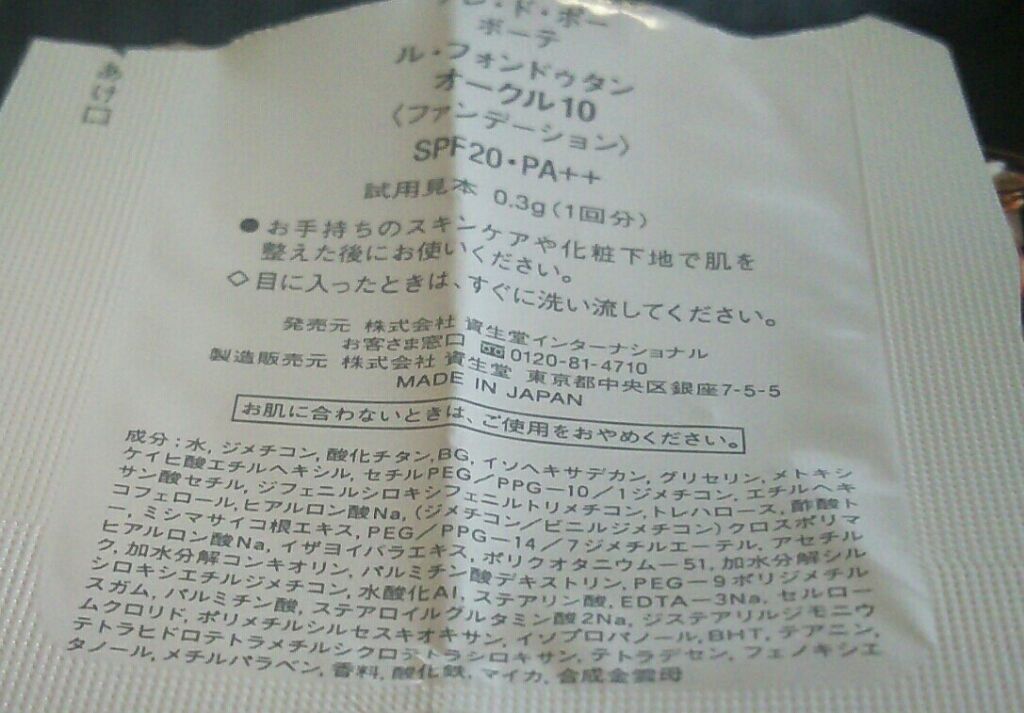 あけ口
ド・ポー
ボーテ
ル・フォンドゥタン
オークル10
〈ファンデーション〉
SPF20・PA++
試用見本 0.3g(1回分)
●お手持ちのスキンケアや化粧下地で肌を
整えた後にお使いください。
◇目に入ったときは、すぐに洗い流してください。
発売元 株式会社 資生堂インターナショナル
お客さま窓口 0120-81-4710
製造販売元 株式会社 資生堂 東京都中央区銀座7-5-5
MADE IN JAPAN
お肌に合わないときは、ご使用をおやめください。
成分:水, ジメチコン, 酸化チタン, BG, イソヘキサデカン, グリセリン, メトキシ
ケイヒ酸エチルヘキシル, セチルPEG/PPG-10/1ジメチコン, エチルヘキ
サン酸セチル, ジフェニルシロキシフェニルトリメチコン, トレハロース, 酢酸ト
コフェロール, ヒアルロン酸Na, (ジメチコン/ビニルジメチコン)クロスポリマ
ー, ミシマサイコ根エキス, PEG/PPG-14/7ジメチルエーテル, アセチル
ヒアルロン酸Na, イザヨイバラエキス, ポリクオタニウム-51, 加水分解シル
ク, 加水分解コンキオリン, パルミチン酸デキストリン, PEG-9ポリジメチル
シロキシエチルジメチコン, 水酸化Al, ステアリン酸, EDTA-3Na, セルロー
スガム, パルミチン酸, ステアロイルグルタミン酸2Na, ジステアリルジモニウ
ムクロリド, ポリメチルシルセスキオキサン, イソプロパノール, BHT, テアニン,
テトラヒドロテトラメチルシクロテトラシロキサン, テトラデセン, フェノキシエ
タノール, メチルパラベン, 香料, 酸化鉄, マイカ, 合成金雲母